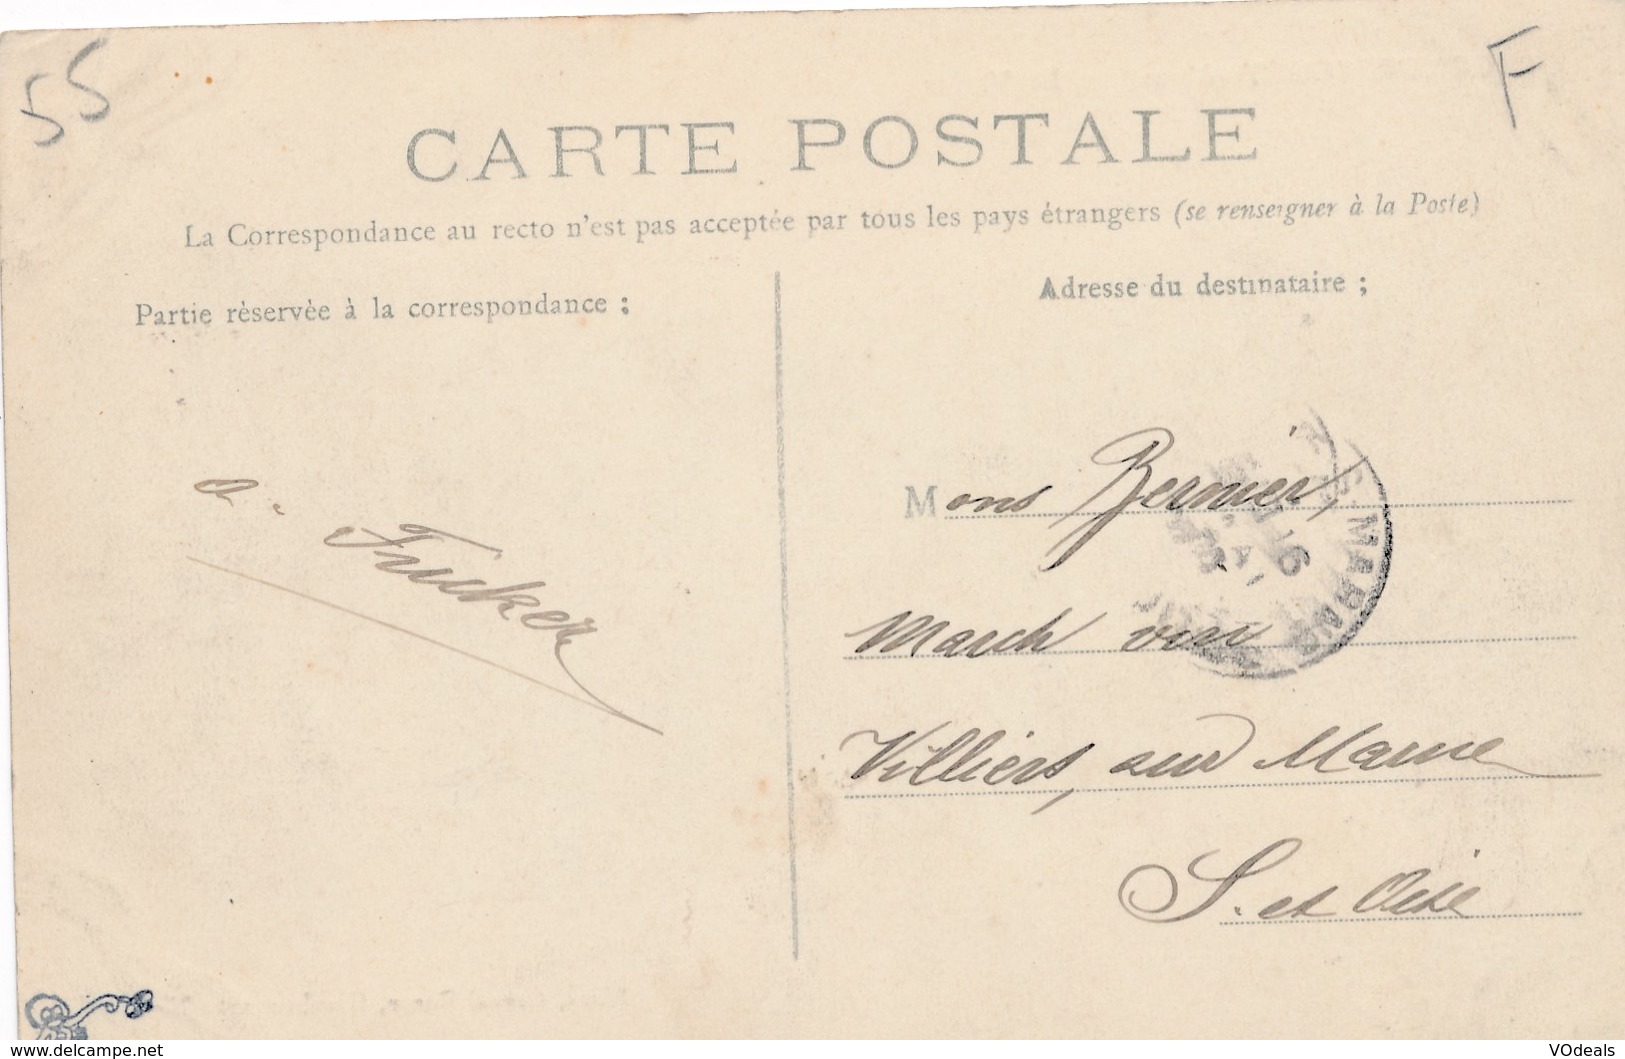 55
F
CARTE POSTALE
La Correspondance au recto n'est pas acceptée par tous les pays étrangers (se renseigner à la Poste)
Partie rèservèe à la correspondance :
Adresse du destinataire ;
a.
Mons Bernier,
March
Villiers, sur Marne
S. et Oise
www.delcampe.net
VOdeals